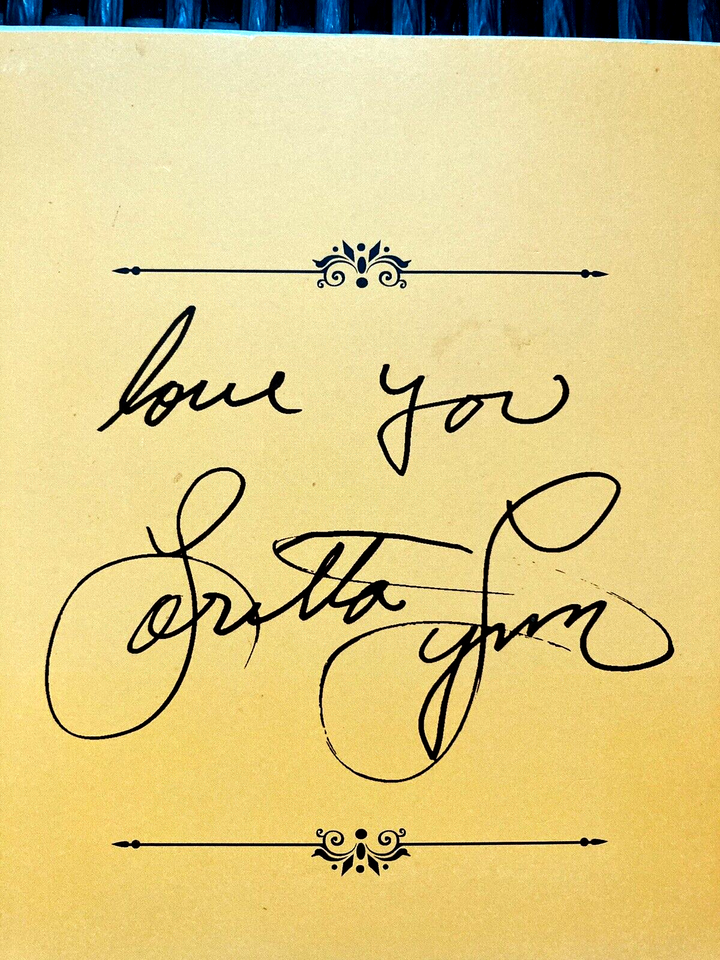 love you
Loretta Lynn